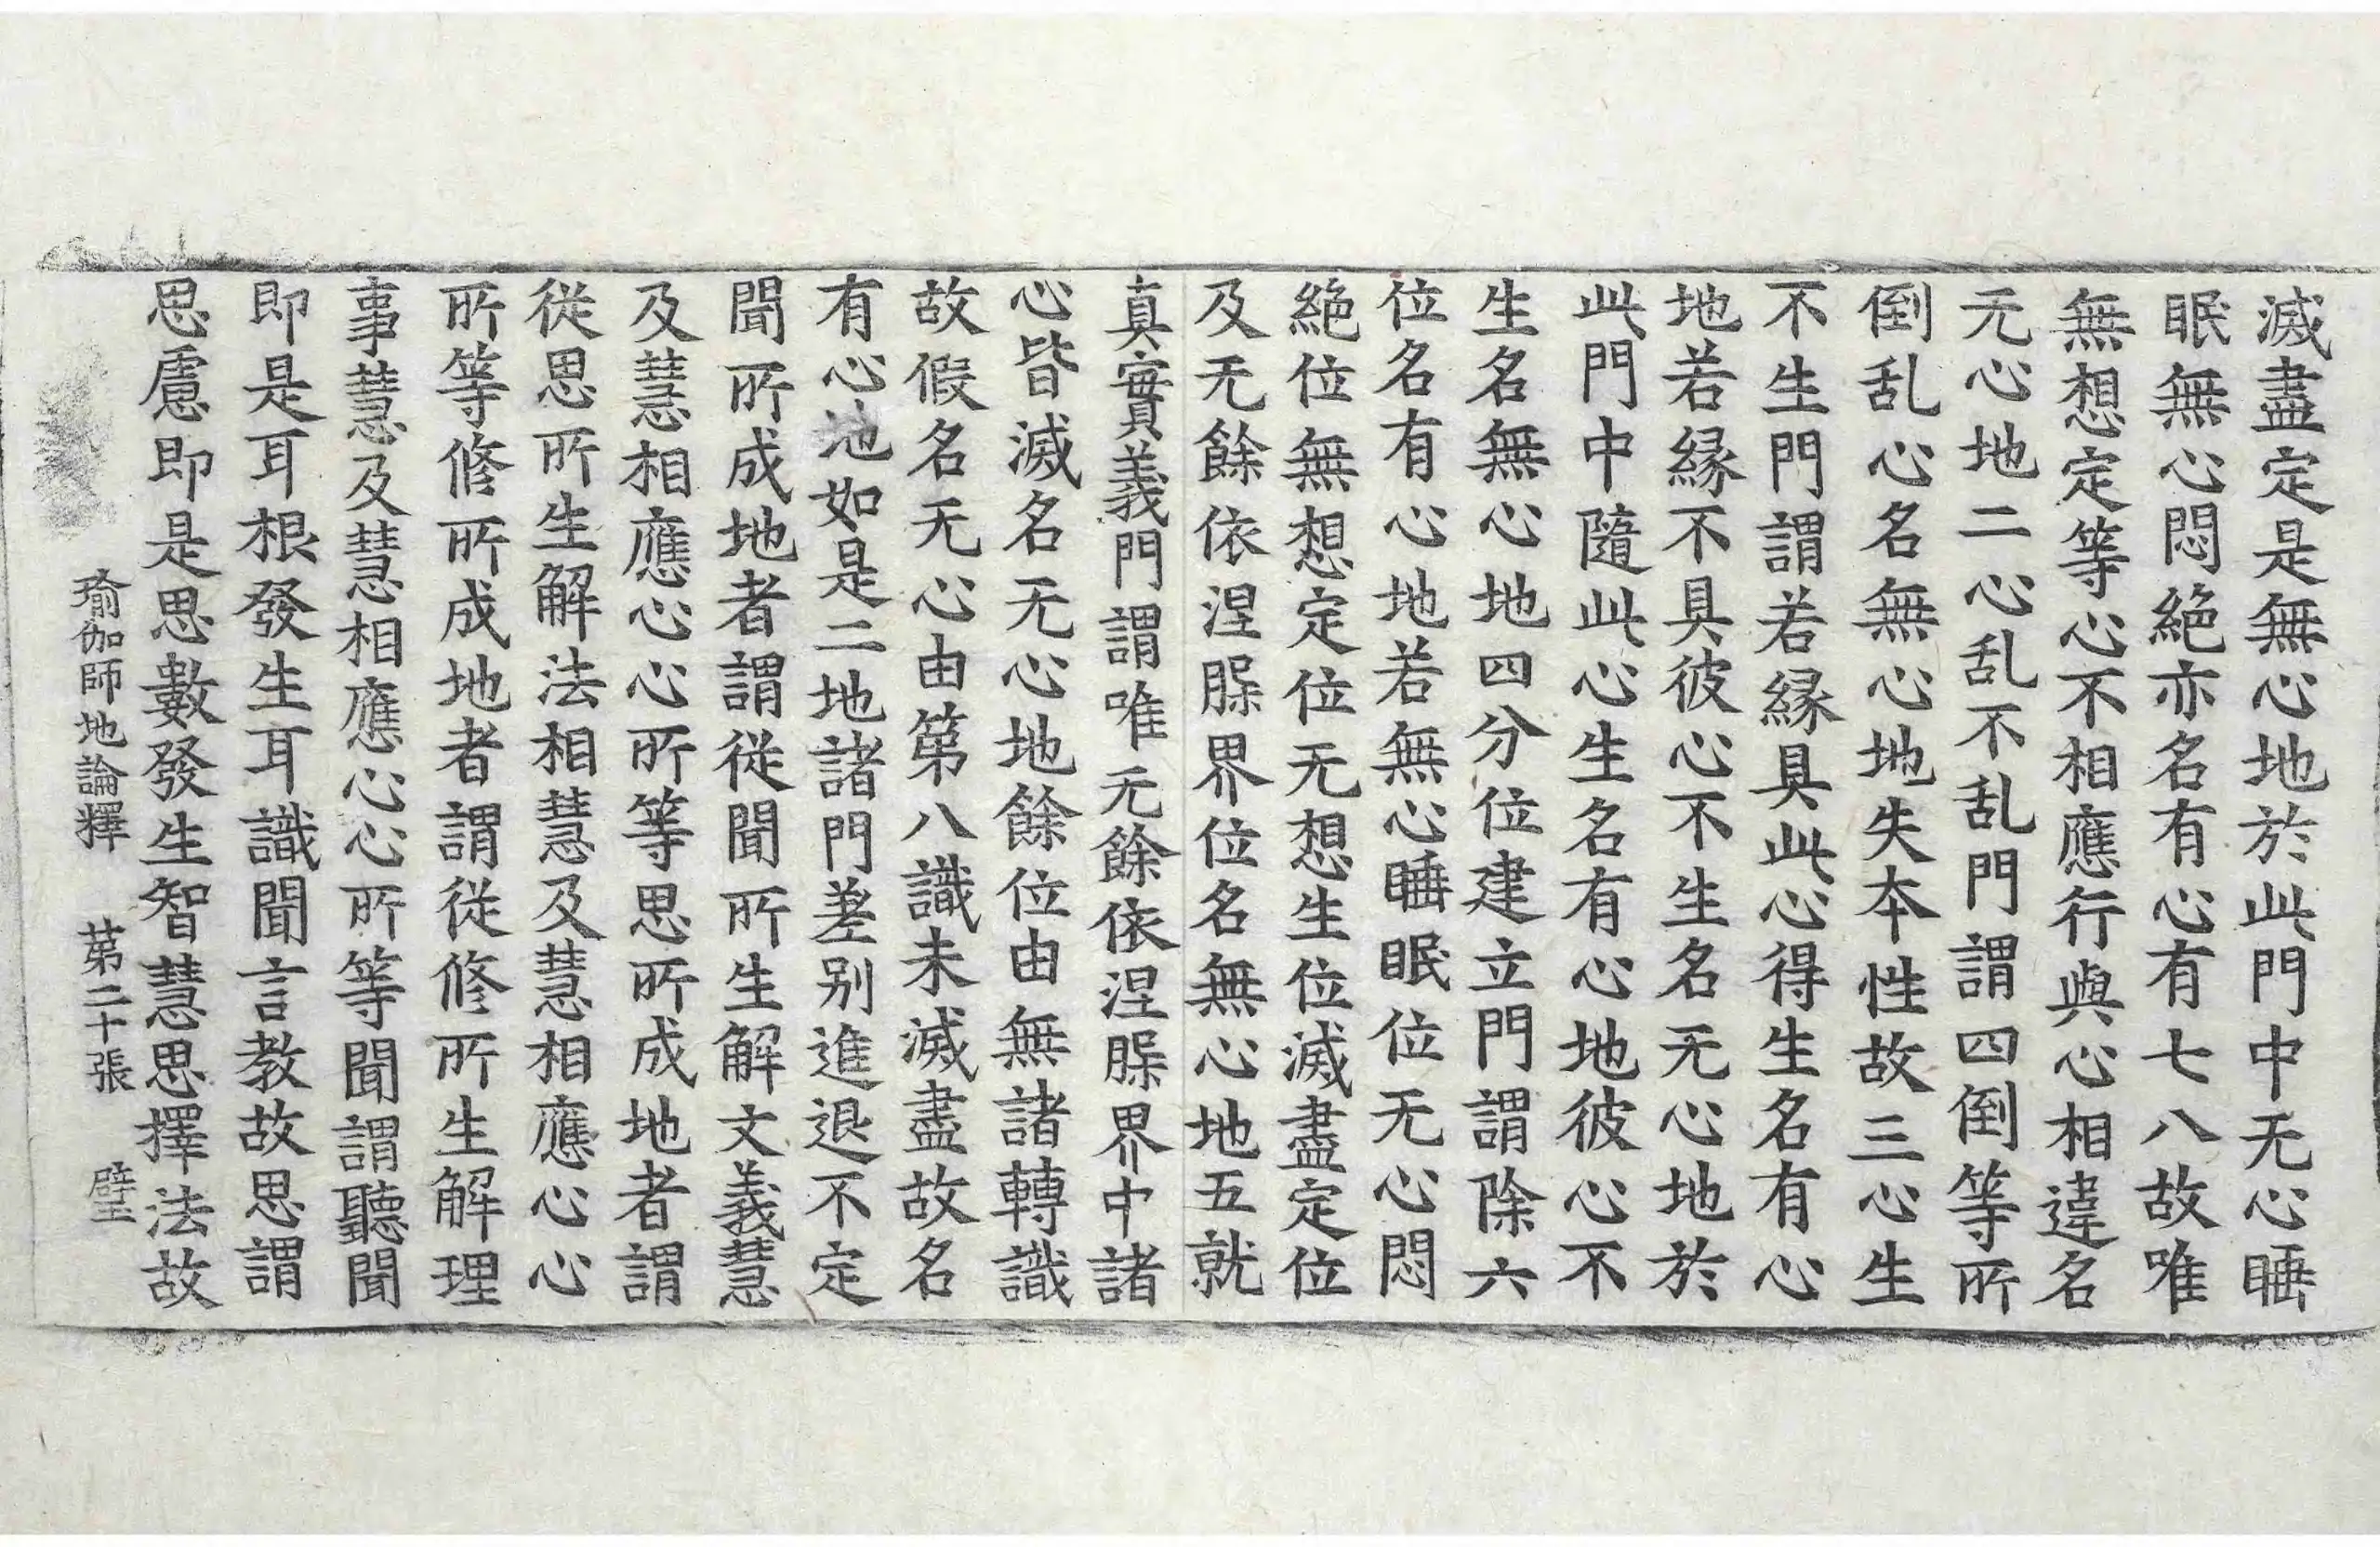 滅盡定是無心地於此門中无心睡
眠無心悶絶亦名有心有七八故唯
無想定等心不相應行與心相違名
无心地二心乱不乱門謂四倒等所
倒乱心名無心地失本性故三心生
不生門謂若縁具此心得生名有心
地若縁不具彼心不生名无心地於
此門中隨此心生名有心地彼心不
生名無心地四分位建立門謂除六
位名有心地若無心睡眠位无心悶
絶位無想定位无想生位滅盡定位
及无餘依涅槃界位名無心地五就
真實義門謂唯无餘依涅槃界中諸
心皆滅名无心地餘位由無諸轉識
故假名无心由第八識未滅盡故名
有心地如是二地諸門差別進退不定
聞所成地者謂從聞所生解文義慧
及慧相應心心所等思所成地者謂
從思所生解法相慧及慧相應心心
所等修所成地者謂從修所生解理
事慧及慧相應心心所等聞謂聽聞
即是耳根發生耳識聞言教故思謂
思慮即是思數發生智慧思擇法故
瑜伽師地論釋 第二十張 壁